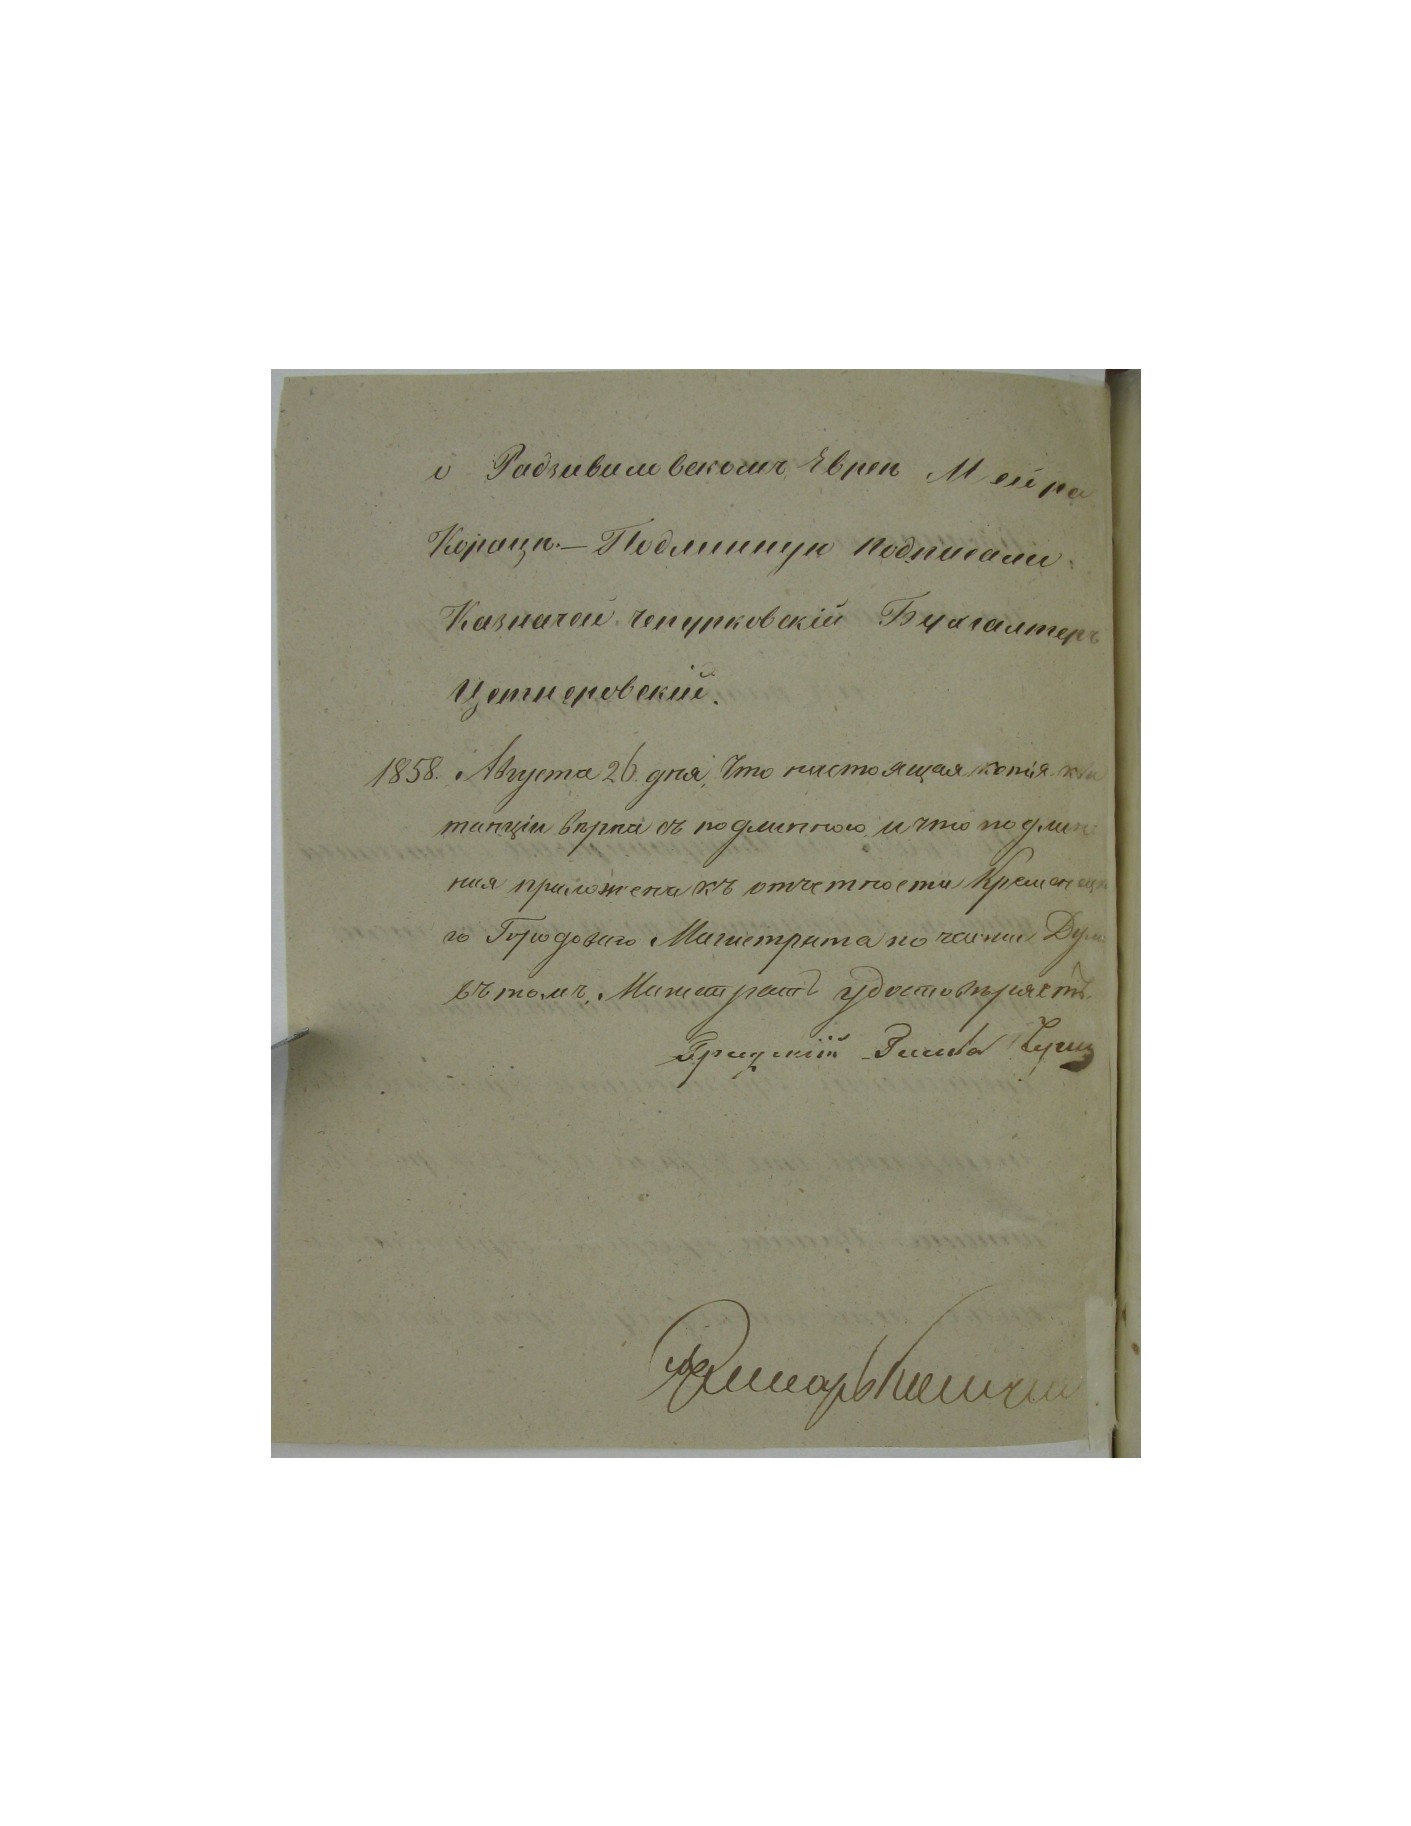 о Радзивиловскомъ Евреѣ Мейра
Корацъ.— Подлинную подписали:
Казначей Чепурковскій Бухгалтеръ
Цетнеровскій.
1858. Августа 26 дня, Что настоящая копія ква
танціи вѣрна съ подлинною и что подлин
ная приложена къ отчетности Кременецка
го Городоваго Магистрата по части Думы
въ томъ Магистратъ удостовѣряетъ.